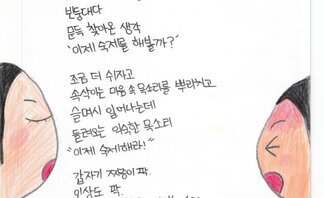 빈둥대다
문득 찾아온 생각
'이제 숙제를 해볼까?'
조금 더 쉬자고
속삭이는 마음속 목소리를 뿌리치고
슬며시 일어나는데
들려오는 익숙한 목소리
"이제 숙제해라!"
갑자기 짜증이 팍.
외상도 팍.